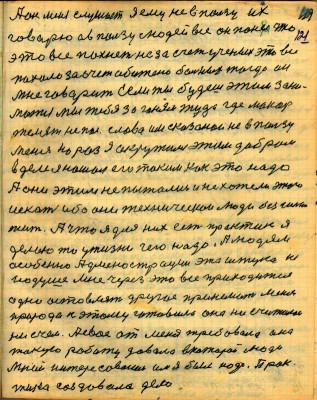 121
А он меня слушает я ему не в пользу их
говорю а в пользу людей все он понял что
это все пахнет не за счет ученых это все
пахало за счет обижено больных тогда он
мне говорит Если ты будеш этим зани-
маться мы тебя загоним туда где макар
телят не пас. слова им сказаны не в пользу
меня но раз я окружил этим добром
в деле нашол его таким как это надо
А они этим не питались и не хотели этого
искать ибо они технические люди без
А что я для них есть практик я
делаю то у жизни чего надо. А людям
особенно Администрации эта штука не
по душе мне через это все приходится
одно оставлять другое принимать меня
природа к этому готовила она не считалась
ни с чем. А свое от меня требовала она
такую работу давала в которой люди
мной интересовались им я был надо. Прак-
тика создавала дело